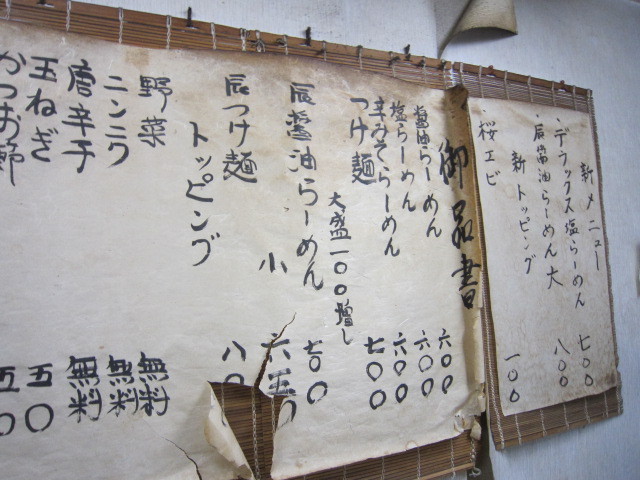 新メニュー
・デラックス塩らーめん 七〇〇
・辰醤油らーめん 大 八〇〇
新トッピング
・桜エビ 一〇〇
御品書
醤油らーめん 六〇〇
塩らーめん 六〇〇
辛みそらーめん 六〇〇
つけ麺 七〇〇
大盛一〇〇増し
辰醤油らーめん 七〇〇
小 六五〇
辰つけ麺 八〇
トッピング
野菜 無料
ニンニク 無料
唐辛子 無料
玉ねぎ 五〇
かつお節 五〇